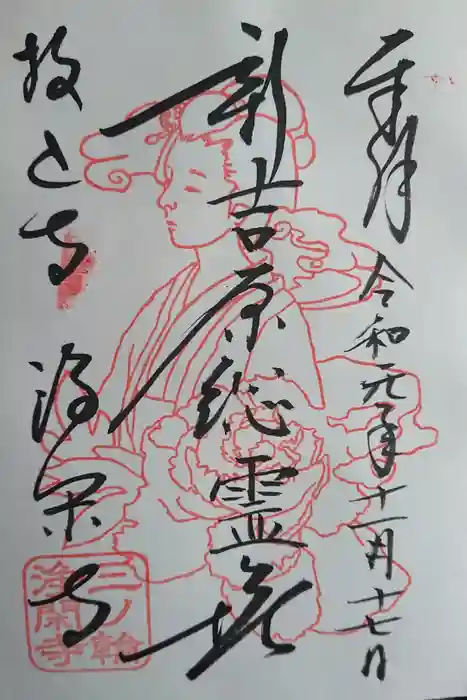 奉拝 令和元年十一月十七日
新吉原総霊塔
投込寺 浄閑寺
三ノ輪
浄閑寺